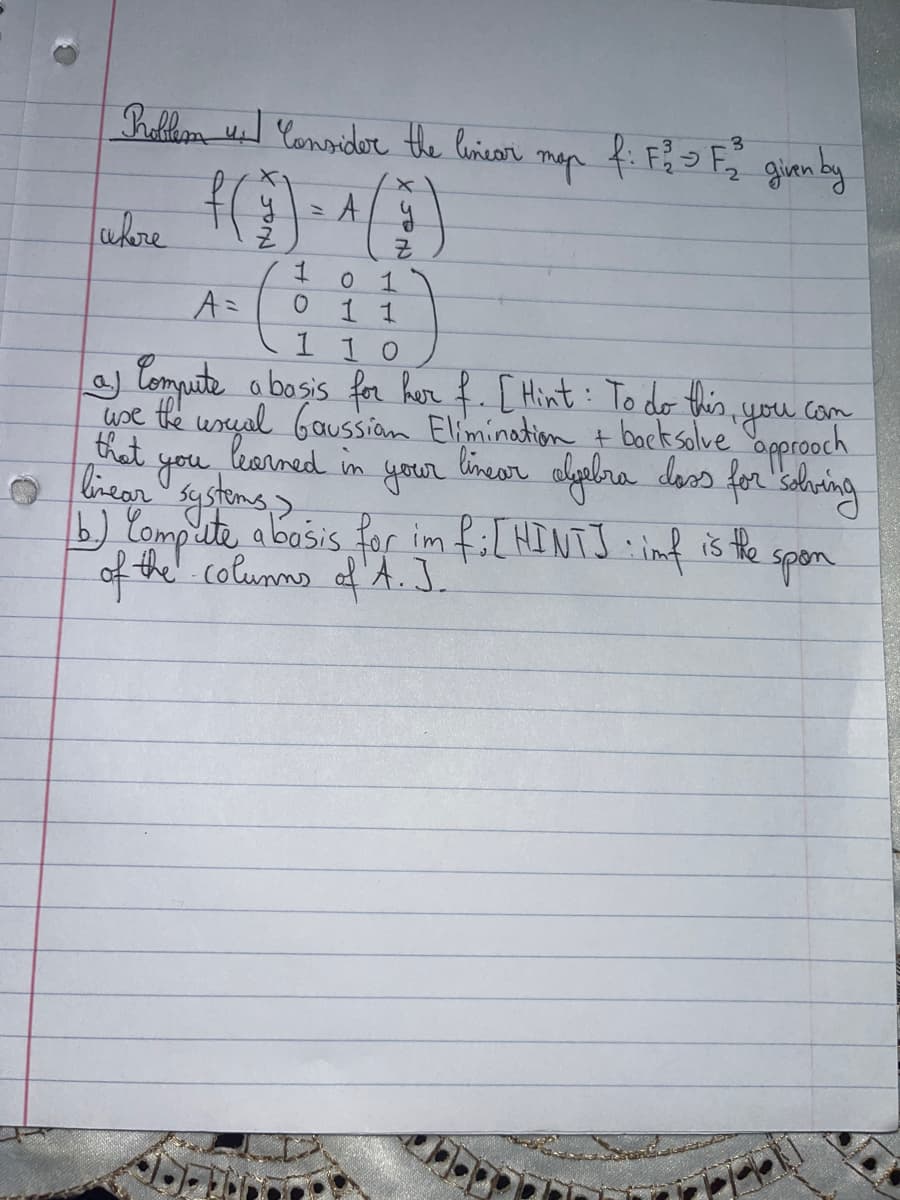 Problem 4.) Consider the linear map f: F₂³ → F₂³ given by
f(x y z) = A(x y z)
where
A = (1 0 1
0 1 1
1 1 0)
a) Compute a basis for ker f. [Hint: To do this, you can
use the usual Gaussian Elimination + backsolve approach
that you learned in your linear algebra class for solving
linear systems.]
b.) Compute a basis for im f: [HINT] : im f is the span
of the columns of A.].